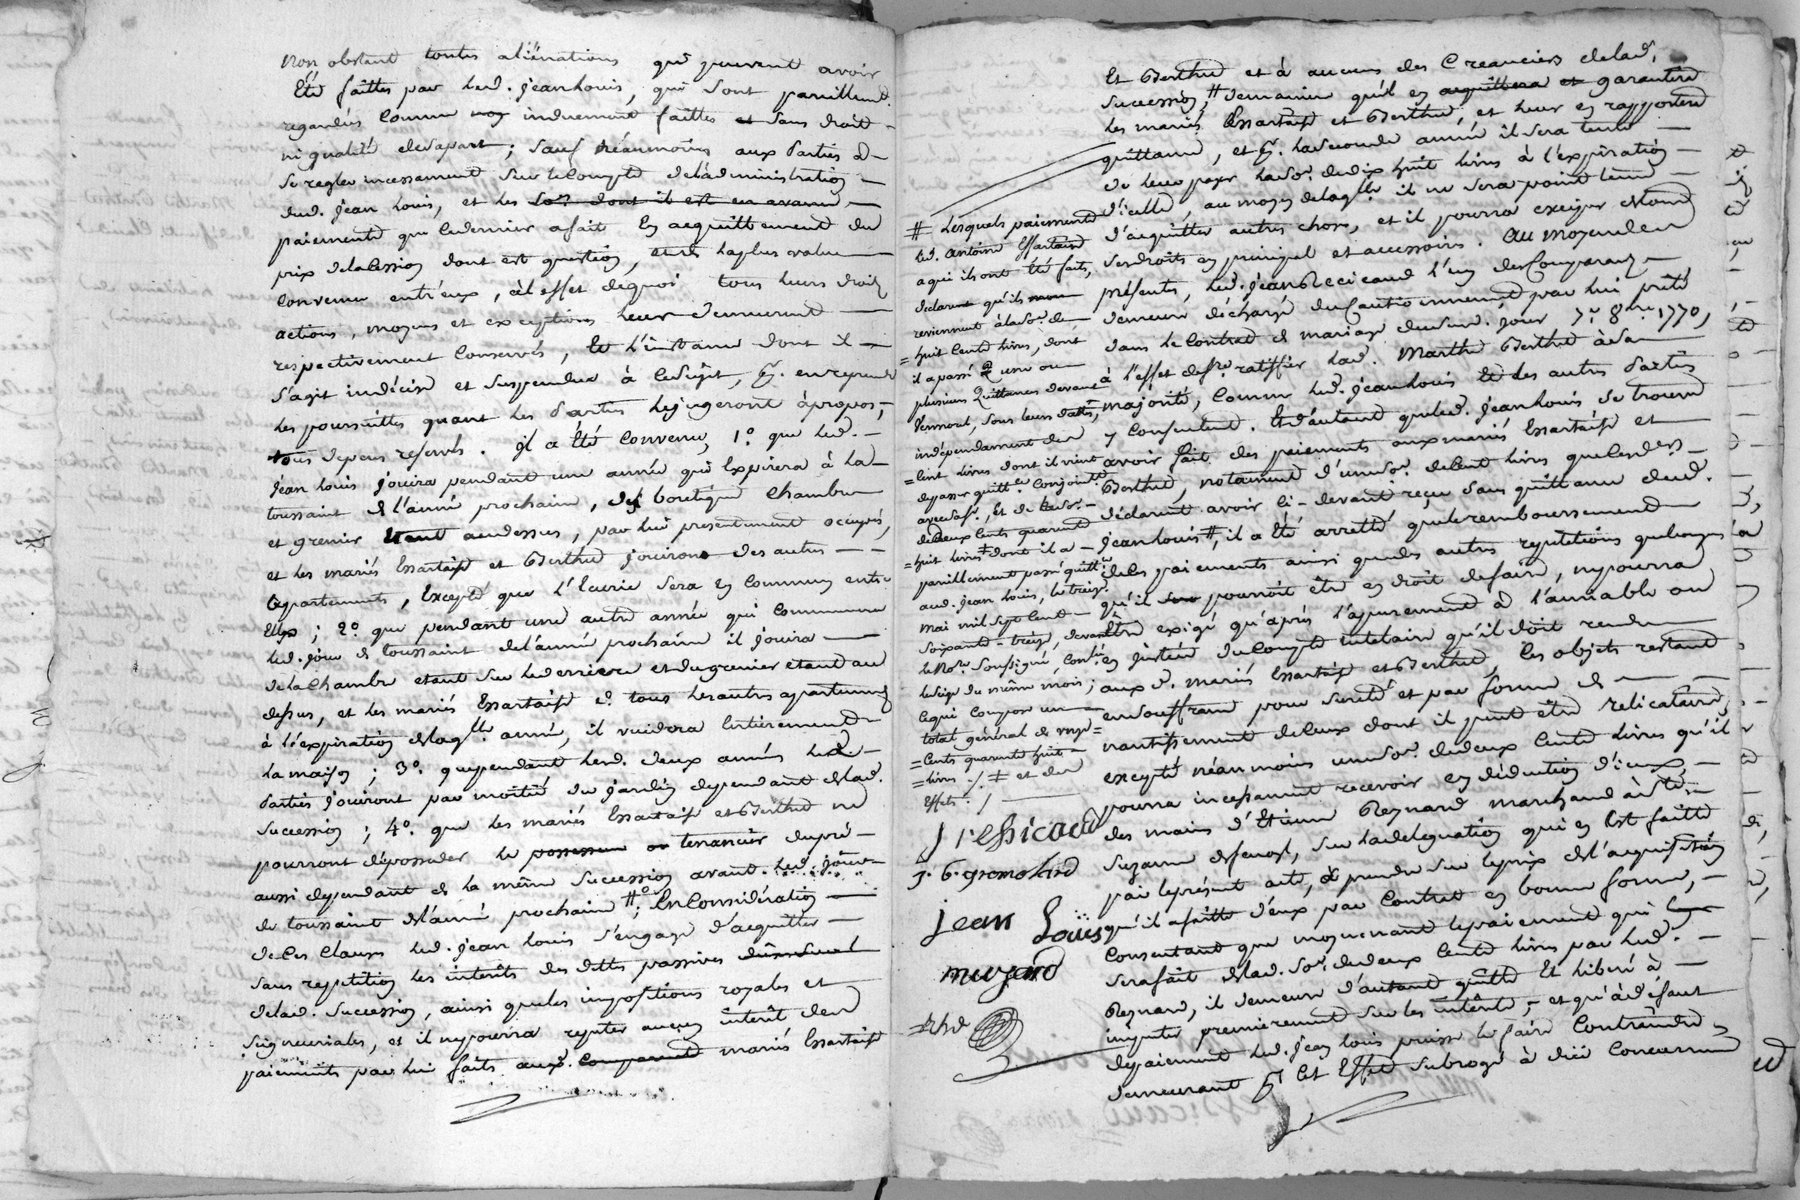 Non obstant touttes aliénations qui peuvent avoir
Eté faittes par led. jean Louis, qui sont pareillemt.
regardées comme indeuement faittes et sans droit
ni qualité desapart; sauf néanmoins aux Parties d
se regler incessament sur lecompte delad ministration
dud. jean Louis, et les dont il est en avance
paiements que cedernier afait En acquittement du
prix delaCession dont est question, et de laplus value
convenue entr'eux, àl'effet dequoi tous leurs droits
actions, moyens et exceptions leur demeurent
respectivement Conservés, Et l'instance dont il
s'agit indécise et suspendue à cesujet, pr. en reprendre
les poursuittes quant les Parties lejugeront àpropos,
tous depens reservés. il a Eté convenu, 1°. que led.
jean Louis jouira pendant une année qui Expirera à la
toussaint de l'année prochaine, des boutique chambre
et grenier audessus, par lui presentement occupés,
et les mariés Essartaise et Berthet jouiront des autres
appartements, Excepté que l'Ecurie sera en commun entre
Eux; 2°. que pendant une autre année qui commencera
led. jour de toussaint delannée prochaine il jouira
delachambre etant sur lederriere et dugrenier etant au
dessus, et les mariés Essartaise &c. tous lesautres apartements
à l'éxpiration delaqlle. année, il vuidera Entièrement
la maison; 3°. quependant lesd. deux années lesd.
Parties jouiront par moitié du jardin dependant delad.
succession; 4°. que les mariés Essartaise et Berthet ne
pourront déposseder le possesseur ou tenancier dupré
aussi dependant de la même succession avant led. jour
de toussaint delannée prochaine #; En Considération
deCes Clauses led. jean Louis s'engage d'acquitter
sans repetition les interêts des dettes passives
delad. succession, ainsi queles impositions royales et
seigneuriales, et il nepourra repeter aucun interêt des
paiements par lui faits aux d. comparant mariés Essartaise
Et Berthet et à aucuns des Creanciers delad.
succession, # demanière qu'il en acquittera et garantira
les mariés Essartaise et Berthet, et leur en rapportera
quittance, et pr. laseconde année il sera tenu
de leur payer laso. dedix huit livres à l'expiration
d'icelle, au moyen delaqlle. il ne sera point tenu
d'acquitter autres chose, et il pourra exciger
ses droits en principal et accessoires. Au moyen
présents, led. jean Recicaud l'un desComparants
demeure déchargé duCautionnement par lui prêté
dans le contrat de mariage dudud. jour 7e. 8bre 1770,
à l'effet defre. ratiffier lad. Marthe Berthet àsa
majorité, comme led. jean Louis Et les autres Parties
y consentent. Et d'autant queled. jean Louis se trouve
avoir fait des paiements aux mariés Essartaise et
Berthet, notament d'une so. deCent livres que
déclarent avoir ci-devant reçue sans quittance dud.
jean Louis #, il a Eté arretté queleremboursement
deCes paiements ainsi queles autres repetitions
qu'il pourroit être en droit defaire, nepourra
être exigé qu'après l'apurement à l'amiable ou
en justice du compte tutelaire qu'il doit rendre
aux d. mariés Essartaise et Berthet, Ces objets restant
ensouffrance pour sureté et par forme de
nantissement deCeux dont il peut être relicataire,
excepté néanmoins une so. dedeux Cents livres qu'il
pourra incessament recevoir en déduction d'iceux,
des mains d'Etienne Reynard marchand
Suzanne, sur ladelegation qui en Est faitte
par leprésent acte, à prendre sur leprix del'acquisition
qu'il afaitte d'eux par contrat en bonne forme,
consentant que moyenant lepaiement qui
serafait delad. so. dedeux Cents livres par led.
Reynard, il demeure d'autant quitte Et libéré à
imputer premierement sur les interêts, et qu'àdéfaut
depaiement led. jean Louis puisse le faire contraindre
demeurant pr. cet Effet subrogé à dieu concurrence
# Lesquels paiements
led. antoine Essartaise
a qui ils ont été faits,
declarent qu'ils
reviennent àlaso. de
huit Cents livres, dont
il a passé une ou
plusieurs Quittances devant
sous leurs dattes,
indépendament des
Cent livres dont il vient
depasser quittce. conjointemt.
avecsafe., et de laso.
dedeux Cents quarante
huit livres dont il a
pareillement passé quittce.
aud. jean Louis, le treize
mai mil sept Cent
soixante-treize, devant
leNore. soussigné, contlé.
leseize du même mois;
cequi compose un
total général de onze
Cents quarante huit
livres. / # et des
Effets. /
J ressicaud
J. G. gremolard
jean Louis
muzard